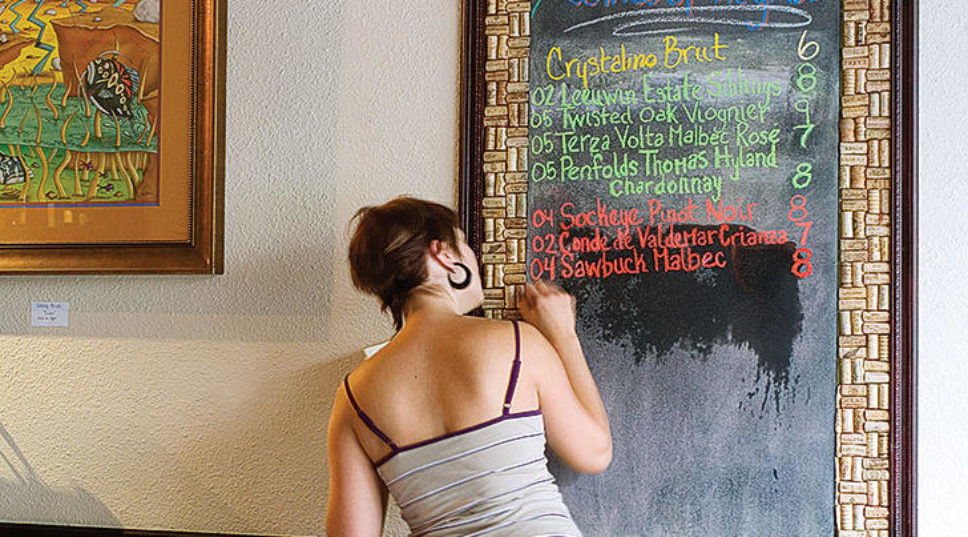 Crystalino Brut 6
02 Leeuwin Estate Siblings 8
05 Twisted Oak Viognier 9
05 Terza Volta Malbec Rose 7
05 Penfolds Thomas Hyland
Chardonnay 8
04 Sockeye Pinot Noir 8
02 Conde de Valdemar Crianza 7
04 Sawbuck Malbec 8